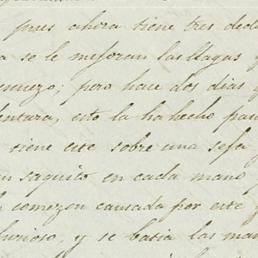 pues ahora tiene tres dedo
a se le mejoran las llagas y
comenzo; pero hace dos dias y
lentura, esto la ha hecho pa
tiene este sobre una sofa
un saquito en cada mano
la comezon causada por este
furioso, y se batia las man